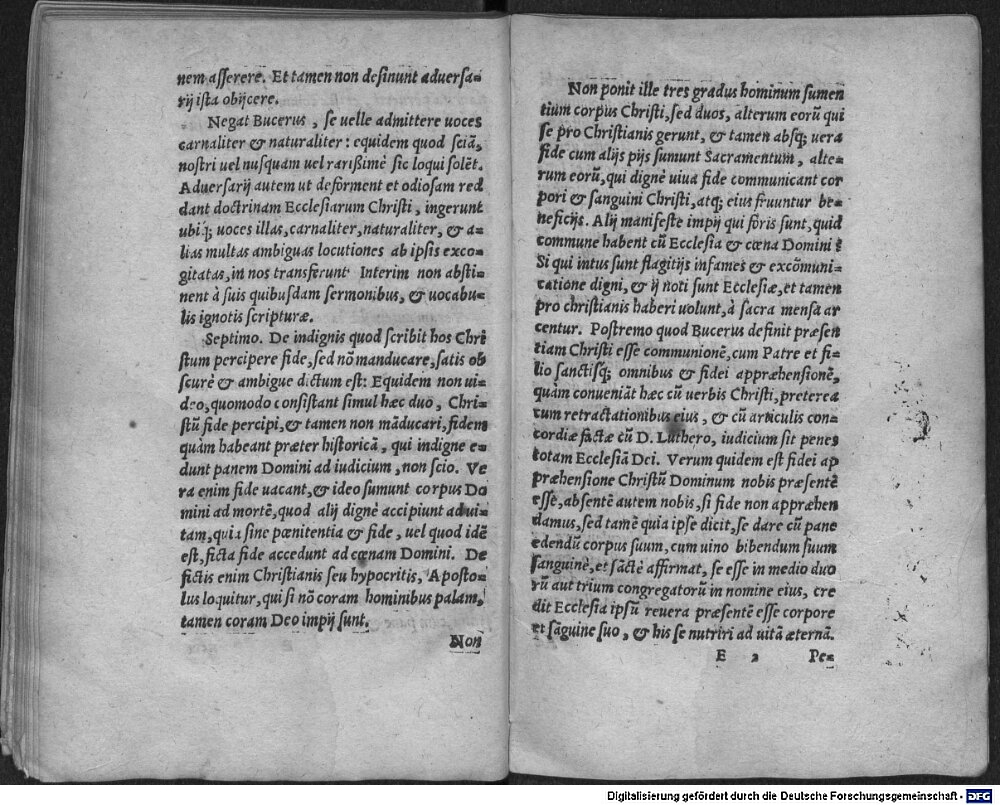 nem asserere. Et tamen non desinunt aduersa=
rij ista obijcere.
Negat Bucerus, se uelle admittere uoces
carnaliter & naturaliter: equidem quod sciā,
nostri uel nusquam uel rarißimè sic loqui solēt.
Aduersarij autem ut deforment et odiosam red
dant doctrinam Ecclesiarum Christi, ingerunt
ubiq; uoces illas, carnaliter, naturaliter, & a=
lias multas ambiguas locutiones ab ipsis exco=
gitatas, in nos transferunt. Interim non absti=
nent à suis quibusdam sermonibus, & uocabu=
lis ignotis scripturæ.
Septimo. De indignis quod scribit hos Chri
stum percipere fide, sed nō manducare, satis ob
scurè & ambigue dictum est: Equidem non ui=
deo, quomodo consistant simul hæc duo, Chri=
stū fide percipi, & tamen non māducari, fidem
quàm habeant præter historicā, qui indigne e=
dunt panem Domini ad iudicium, non scio. Ve
ra enim fide uacant, & ideo sumunt corpus Do
mini ad mortē, quod alij dignè accipiunt ad ui=
tam, quia sine pœnitentia & fide, uel quod idē
est, ficta fide accedunt ad cœnam Domini. De
fictis enim Christianis seu hypocritis, Aposto=
lus loquitur, qui si nō coram hominibus palam,
tamen coram Deo impij sunt.
Non
Non ponit ille tres gradus hominum sumen
tium corpus Christi, sed duos, alterum eorū qui
se pro Christianis gerunt, & tamen absq; uera
fide cum alijs pijs sumunt Sacramentum, alte=
rum eorū, qui dignè uiua fide communicant cor
pori & sanguini Christi, atq; eius fruuntur be=
neficijs. Alij manifeste impij qui foris sunt, quid
commune habent cū Ecclesia & cœna Domini?
Si qui intus sunt flagitijs infames & excōmuni=
catione digni, & ij noti sunt Ecclesiæ, et tamen
pro christianis haberi uolunt, à sacra mensa ar
centur. Postremo quod Bucerus definit præsen
tiam Christi esse communionē, cum Patre et fi=
lio sanctisq; omnibus & fidei appræhensionē,
quàm conueniāt hæc cū uerbis Christi, preterea
cum retractationibus eius, & cū articulis con=
cordiæ factæ cū D. Luthero, iudicium sit penes
totam Ecclesiā Dei. Verum quidem est fidei ap
præhensione Christū Dominum nobis præsentē
esse, absentē autem nobis, si fide non appræhen
damus, sed tamē quia ipse dicit, se dare cū pane
edendū corpus suum, cum uino bibendum suum
sanguinē, et sāctè affirmat, se esse in medio duo
rū aut trium congregatorū in nomine eius, cre
dit Ecclesia ipsū reuera præsentē esse corpore
et sāguine suo, & his se nutriri ad uitā æternā.
E 2 Pe=
Digitalisierung gefördert durch die Deutsche Forschungsgemeinschaft - DFG